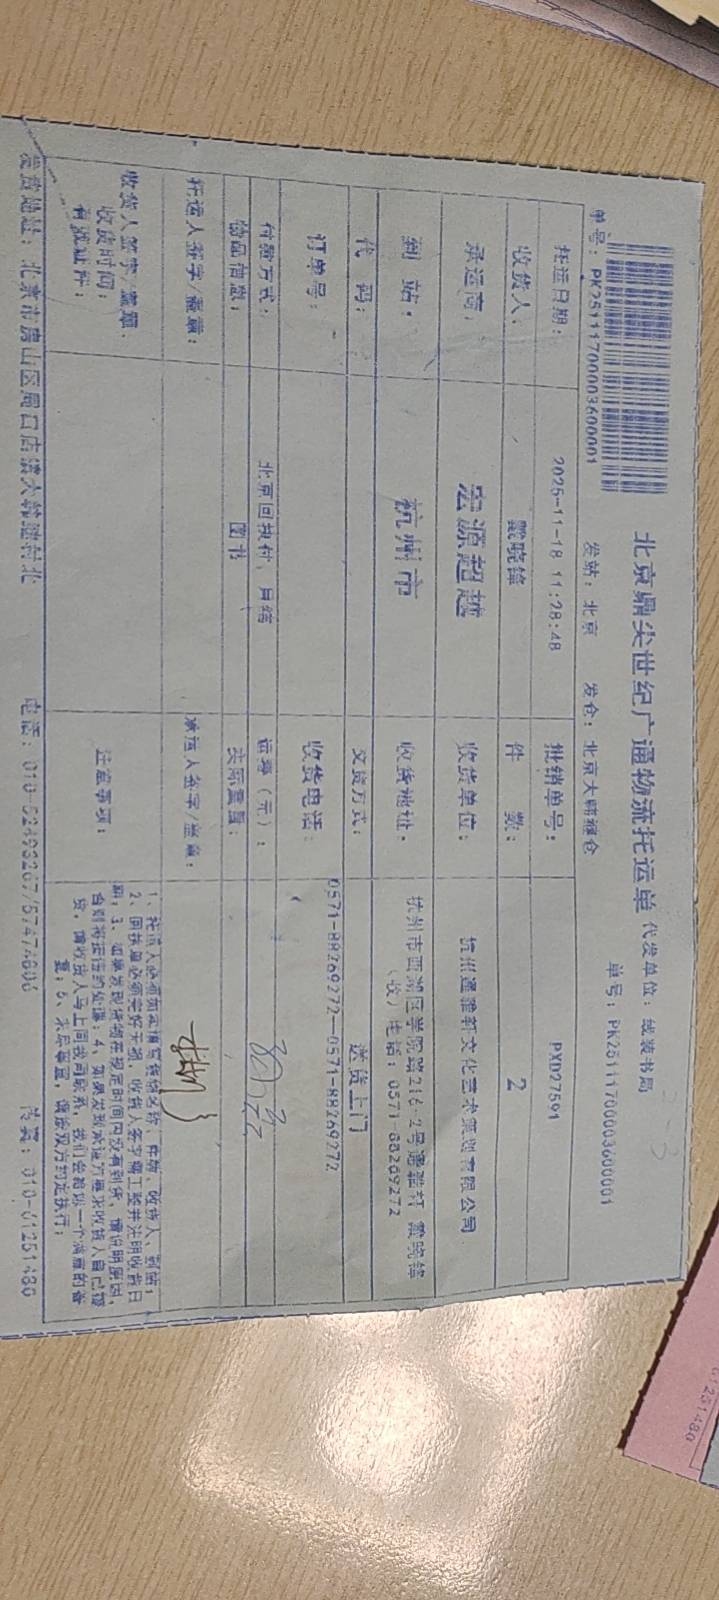 北京鼎尖世纪广通物流托运单
代发单位：线装书局
单号：PK25111700003600001
发站：北京
发仓：北京大韩继仓
单号：PK25111700003600001
托运日期：
2025-11-18 11:28:48
批销单号：
PXD27591
收货人：
戴晓锋
件 数：
2
承运商：
宏源超越
收货单位：
杭州通雅轩文化艺术策划有限公司
到 站：
杭州市
收货地址：
杭州市西湖区学院路216-2号通雅轩 戴晓锋
（收）电话：0571-88269272
代 码：
交货方式：
送货上门
订单号：
收货电话：
0571-88269272—0571-88269272
付款方式：
北京回执付、月结
运费（元）：
物品信息：
图书
实际重量：
托运人签字/盖章：
承运人签字/盖章：
收货人签字/盖章：
收货时间：
有效证件：
注意事项：
1、托运人必须如实填写货物名称、件数、收货人、到站；
2、回执单必须完好无损，收货人签字需工整并注明收货日
期；3、如果发现货物在规定时间内没有到货，请说明原因，
否则将按违约处理；4、如果发到承运方要求收货人自己提
货，请收货人马上回我司联系，我们会给你一个满意的答
复；5、未尽事宜，请按双方约定执行；
发货地址：北京市房山区周口店镇大韩继村北
电话：010-52493267/57474606
传真：010-61251480
61251480